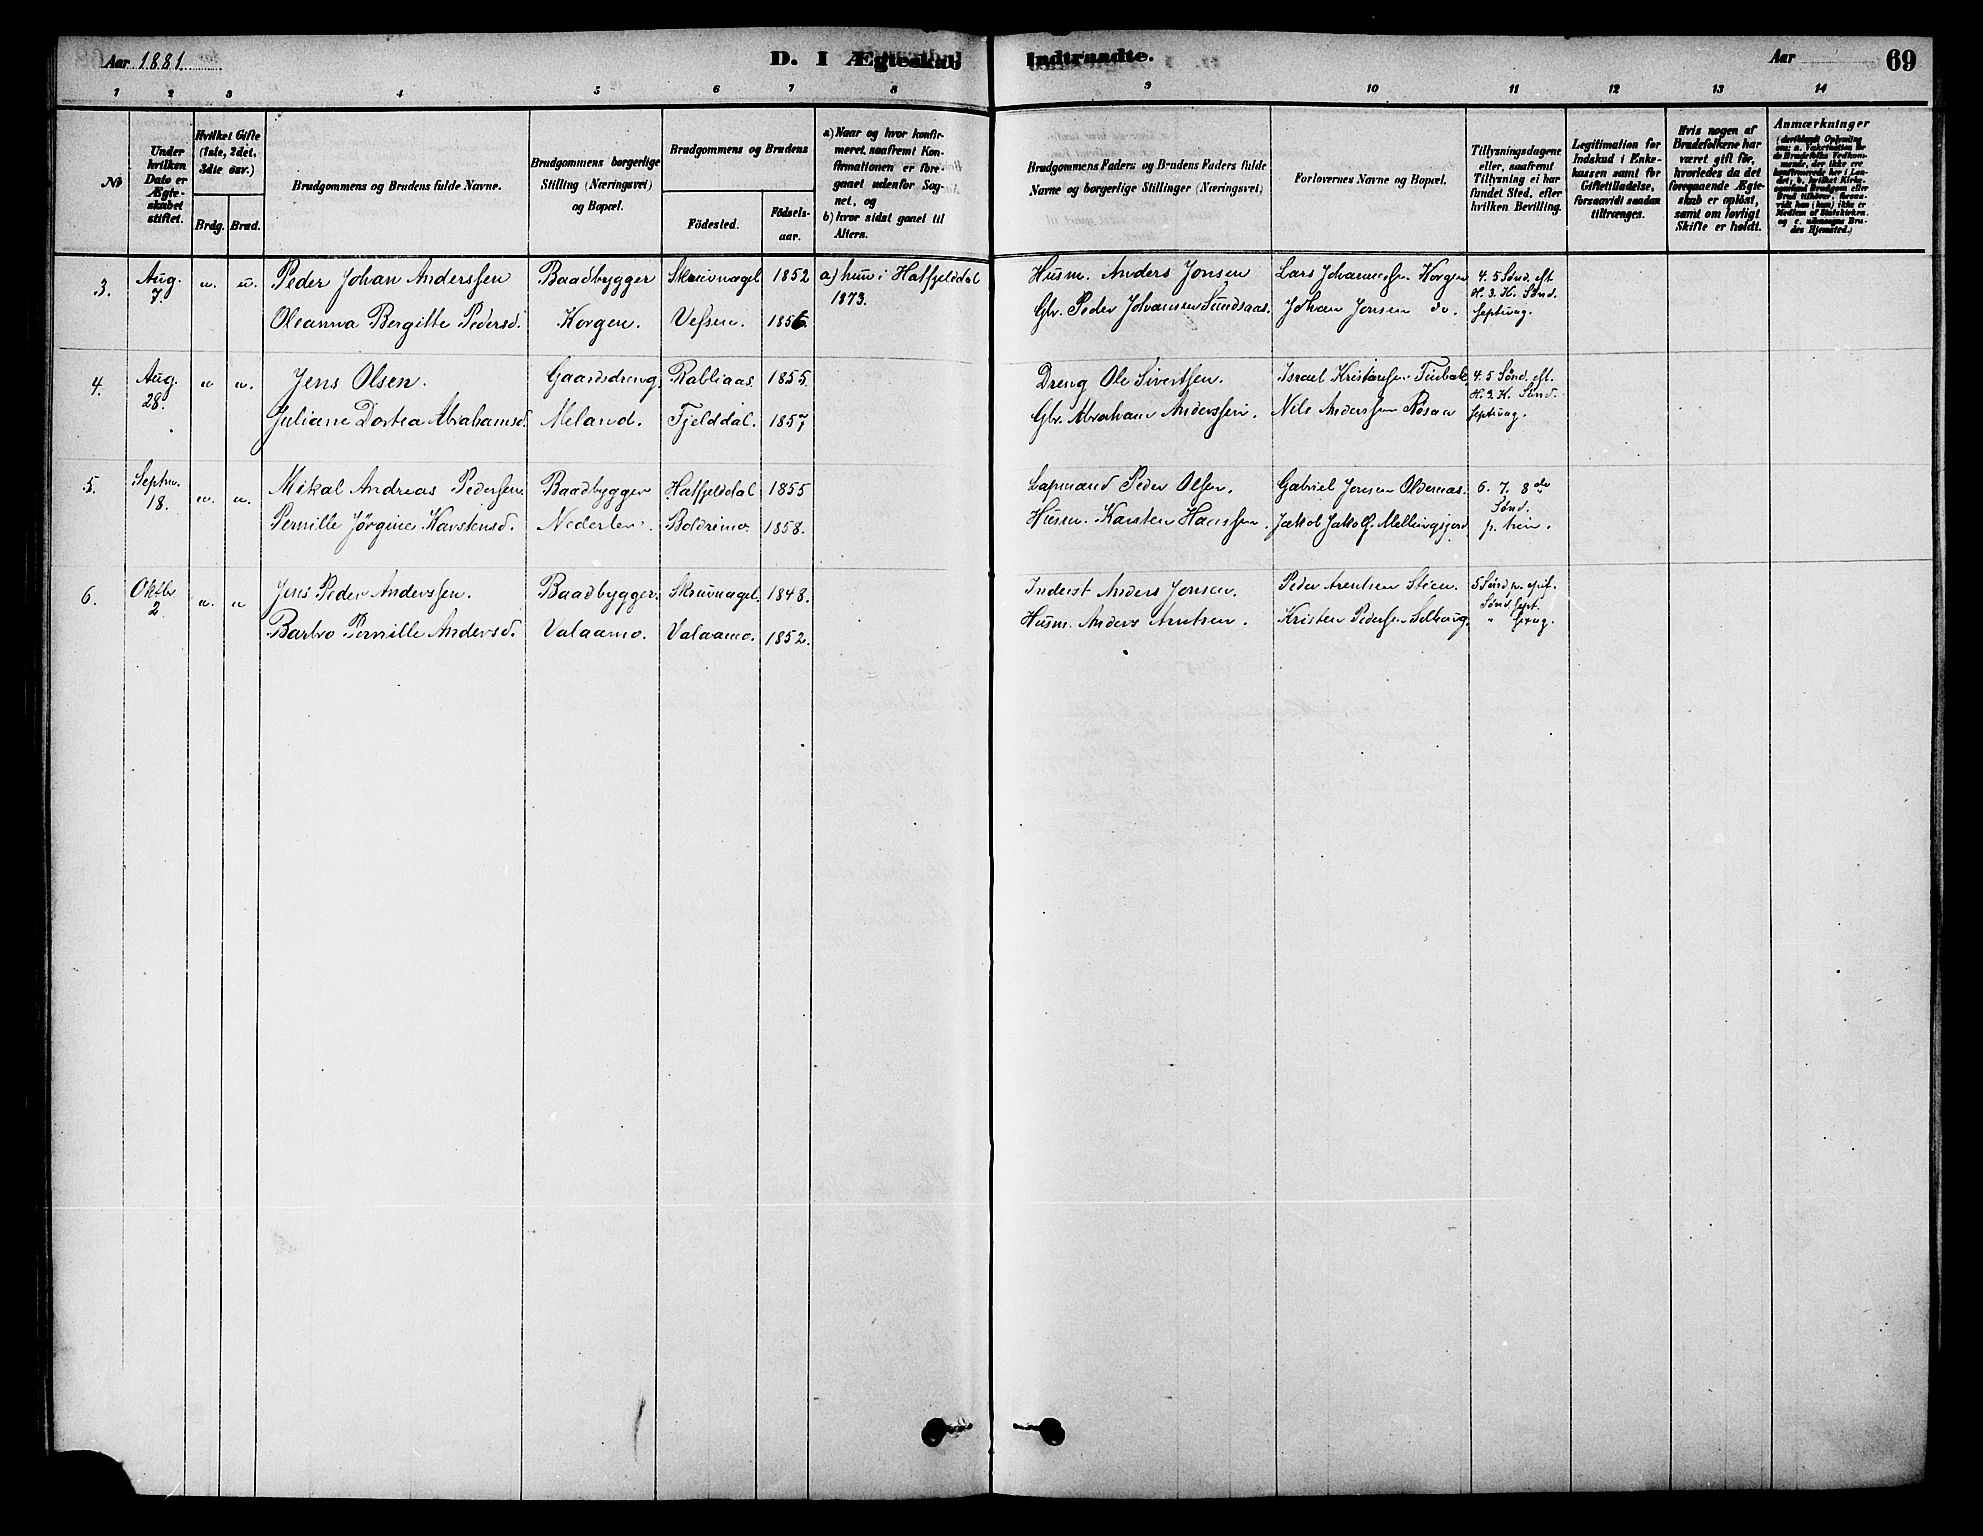 Aar 1881.
D. I Ægteskab Indtraadte.
Aar
69
1 2 3 4 5 6 7 8 9 10 11 12 13 14
№
Under hvilken Dato er Ægteskabet stiftet.
Hvilket Gifte (1ste, 2det, 3die osv.)
Brdg. Brud.
Brudgommens og Brudens fulde Navne.
Brudgommens borgerlige Stilling (Næringsvei) og Bopæl.
Brudgommens og Brudens
Födested.
Födselsaar.
a) Naar og hvor konfirmeret, saafremt Konfirmationen er foregaaet udenfor Sognet, og
b) hvor sidst gaaet til Alters.
Brudgommens Faders og Brudens Faders fulde Navne og borgerlige Stillinger (Næringsvei)
Forlovernes Navne og Bopæl.
Tillysningsdagene eller, saafremt Tillysning ei har fundet Sted, efter hvilken Bevilling.
Legitimation for Indskud i Enkekassen samt for Giftetilladelse, forsaavidt saadan tiltrænges.
Hvis nogen af Brudefolkene har været gift för, hvorledes da det foregaaende Ægteskab er oplöst, samt om lovligt Skifte er holdt.
Anmærkninger
3. Aug. 7. u. u. Peder Johan Anderssen Baadbygger Skruvnagel 1852 a) hun i Hatfjelddal 1873. Husm. Anders Jonsen Lars Johannessen Korgen 4. 5 Sønd. eft. H. 3. K. Sønd. septuag.
Oleanna Bergitte Pedersd. Korgen. Vefsen. 1856 Gbr. Peder Johansen Sundsaas. Johan Jonsen do.
4. Aug. 28. u u. Jens Olsen. Gaardsdreng Rabliaas. 1855. Dreng Ole Sivertsen. Israel Kristensen 4. 5 Sønd. eft. H. 3. K. Sønd. septuag.
Juliane Dortea Abrahamsd. Meland. Fjelddal. 1857 Gbr. Abraham Anderssen. Nils Anderssen Røsaa
5. Septbr. 18. u. u. Mikal Andreas Pedersen Baadbygger Hatfjelddal 1855 Lapmand Peder Olsen. Gabriel Jonsen Oldernæs. 6. 7. 8de Sønd. p. trin.
Pernille Jørgine Karstensd. Nederler Boldrimo 1858. Husm. Karsten Hanssen. Jakob Jakobs. Mellingsjord
6. Oktbr 2 u. u Jens Peder Anderssen. Baadbygger. Skruvnagel. 1848. Inderst Anders Jonsen. Peder Arentsen Steen. 5 Sønd. p. epif. Sønd. sept. " sexag.
Barbro Pernille Andersd. Valaamo. Valaamo. 1852. Husm. Anders Arntsen. Kristen Pedersen Selhoug.